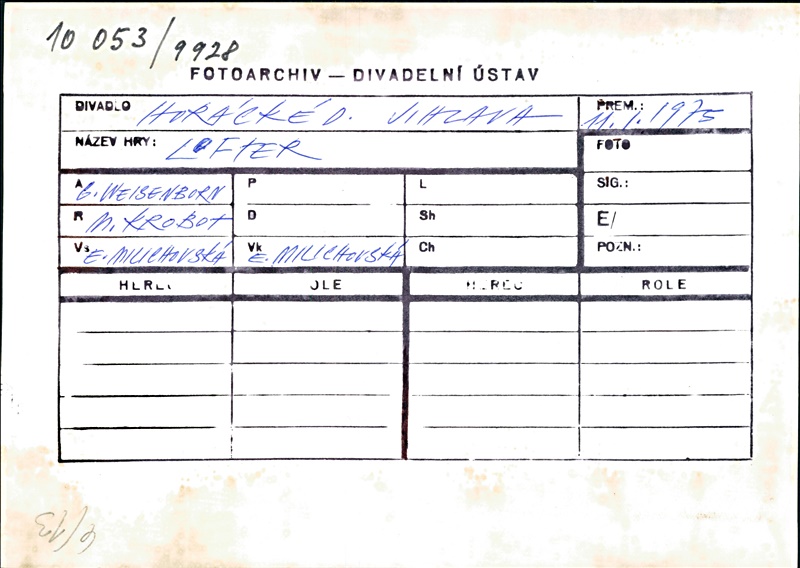 10 053/9928
FOTOARCHIV — DIVADELNÍ ÚSTAV
DIVADLO HORÁCKÉ D. JIHLAVA
PREM.: 11. 1. 1975
NÁZEV HRY: LOFTER
FOTO
A G. WEISENBORN
P
L
SIG.:
R M. KROBOT
D
Sh
E/
Vs E. MILICHOVSKÁ
Vk E. MILICHOVSKÁ
Ch
POZN.:
HEREC
ROLE
HEREC
ROLE